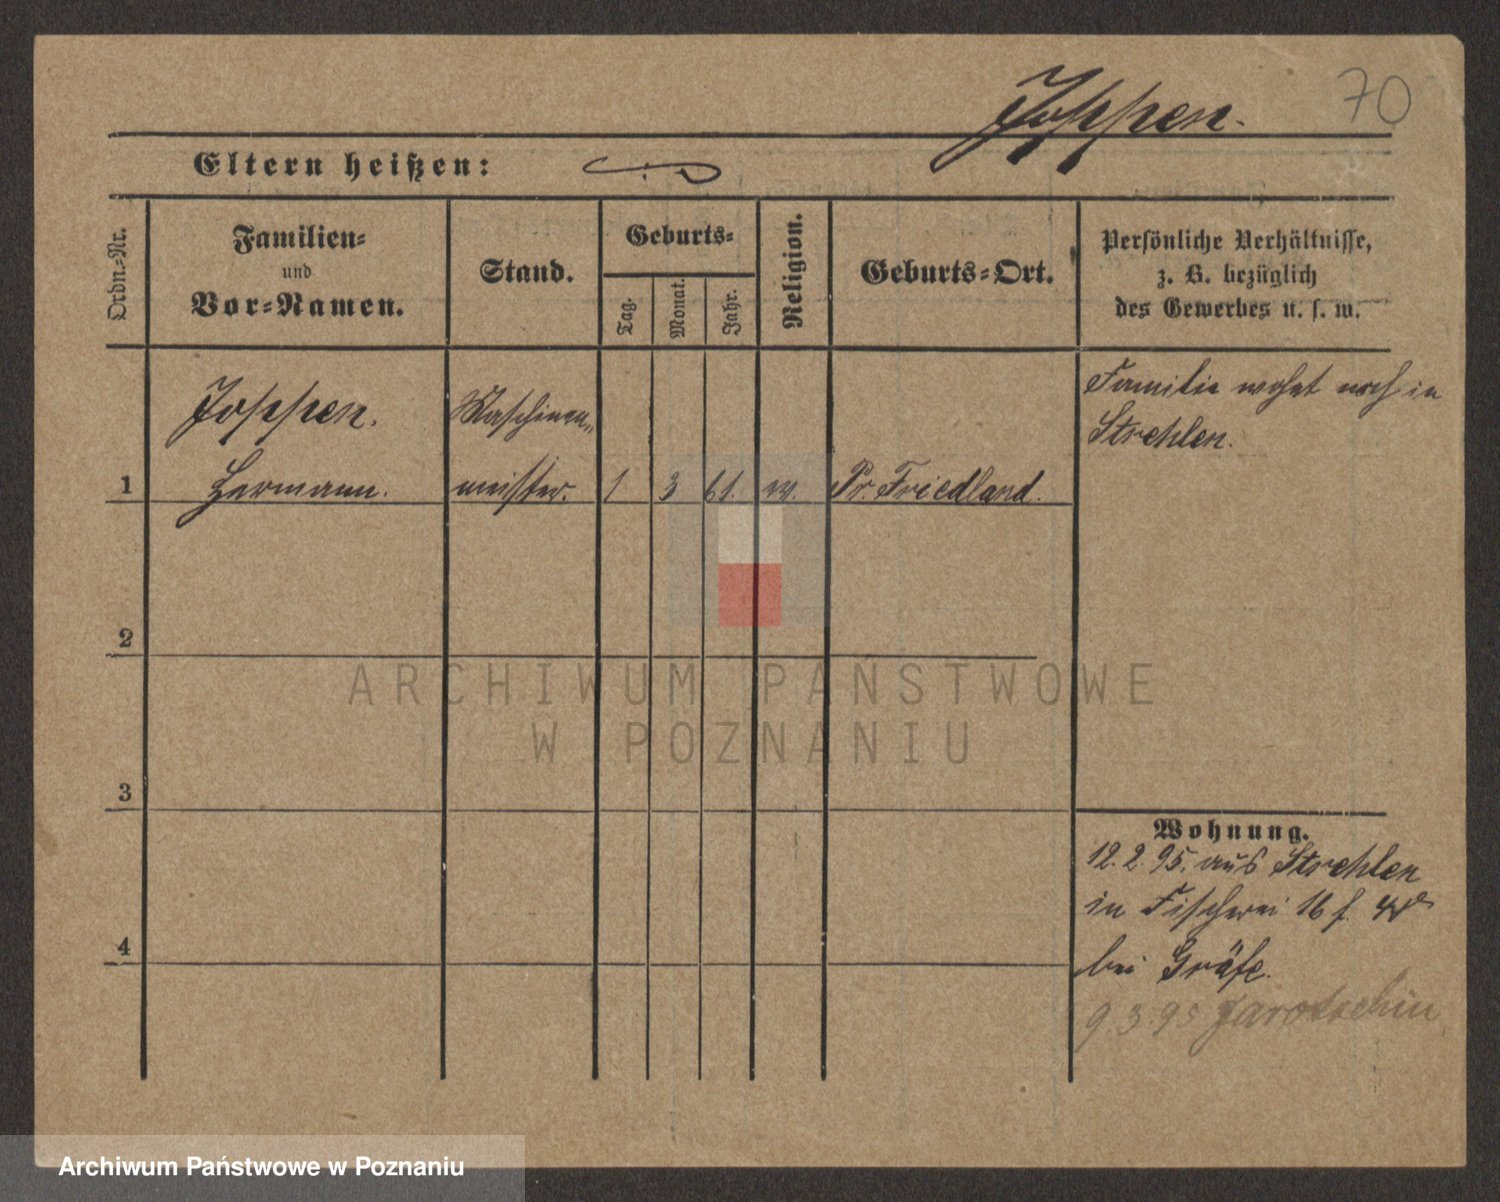 70
Joppen.
Eltern heißen:
Ordn.-Nr.
Familien-
und
Vor-Namen.
Stand.
Geburts-
Tag.
Monat.
Jahr.
Religion.
Geburts-Ort.
Persönliche Verhältnisse,
z. B. bezüglich
des Gewerbes u. s. w.
Joppen.
Maschinen-
1 Hermann. meister. 1 3 61. ev. Pr. Friedland.
Familie wohnt noch in
Strehlen.
2
3
4
Wohnung.
12. 2. 95. aus Strehlen
in Fischerei 16 f.
bei Gräfe.
9. 3. 95 Jarotschin
ARCHIWUM PAŃSTWOWE
W POZNANIU
Archiwum Państwowe w Poznaniu